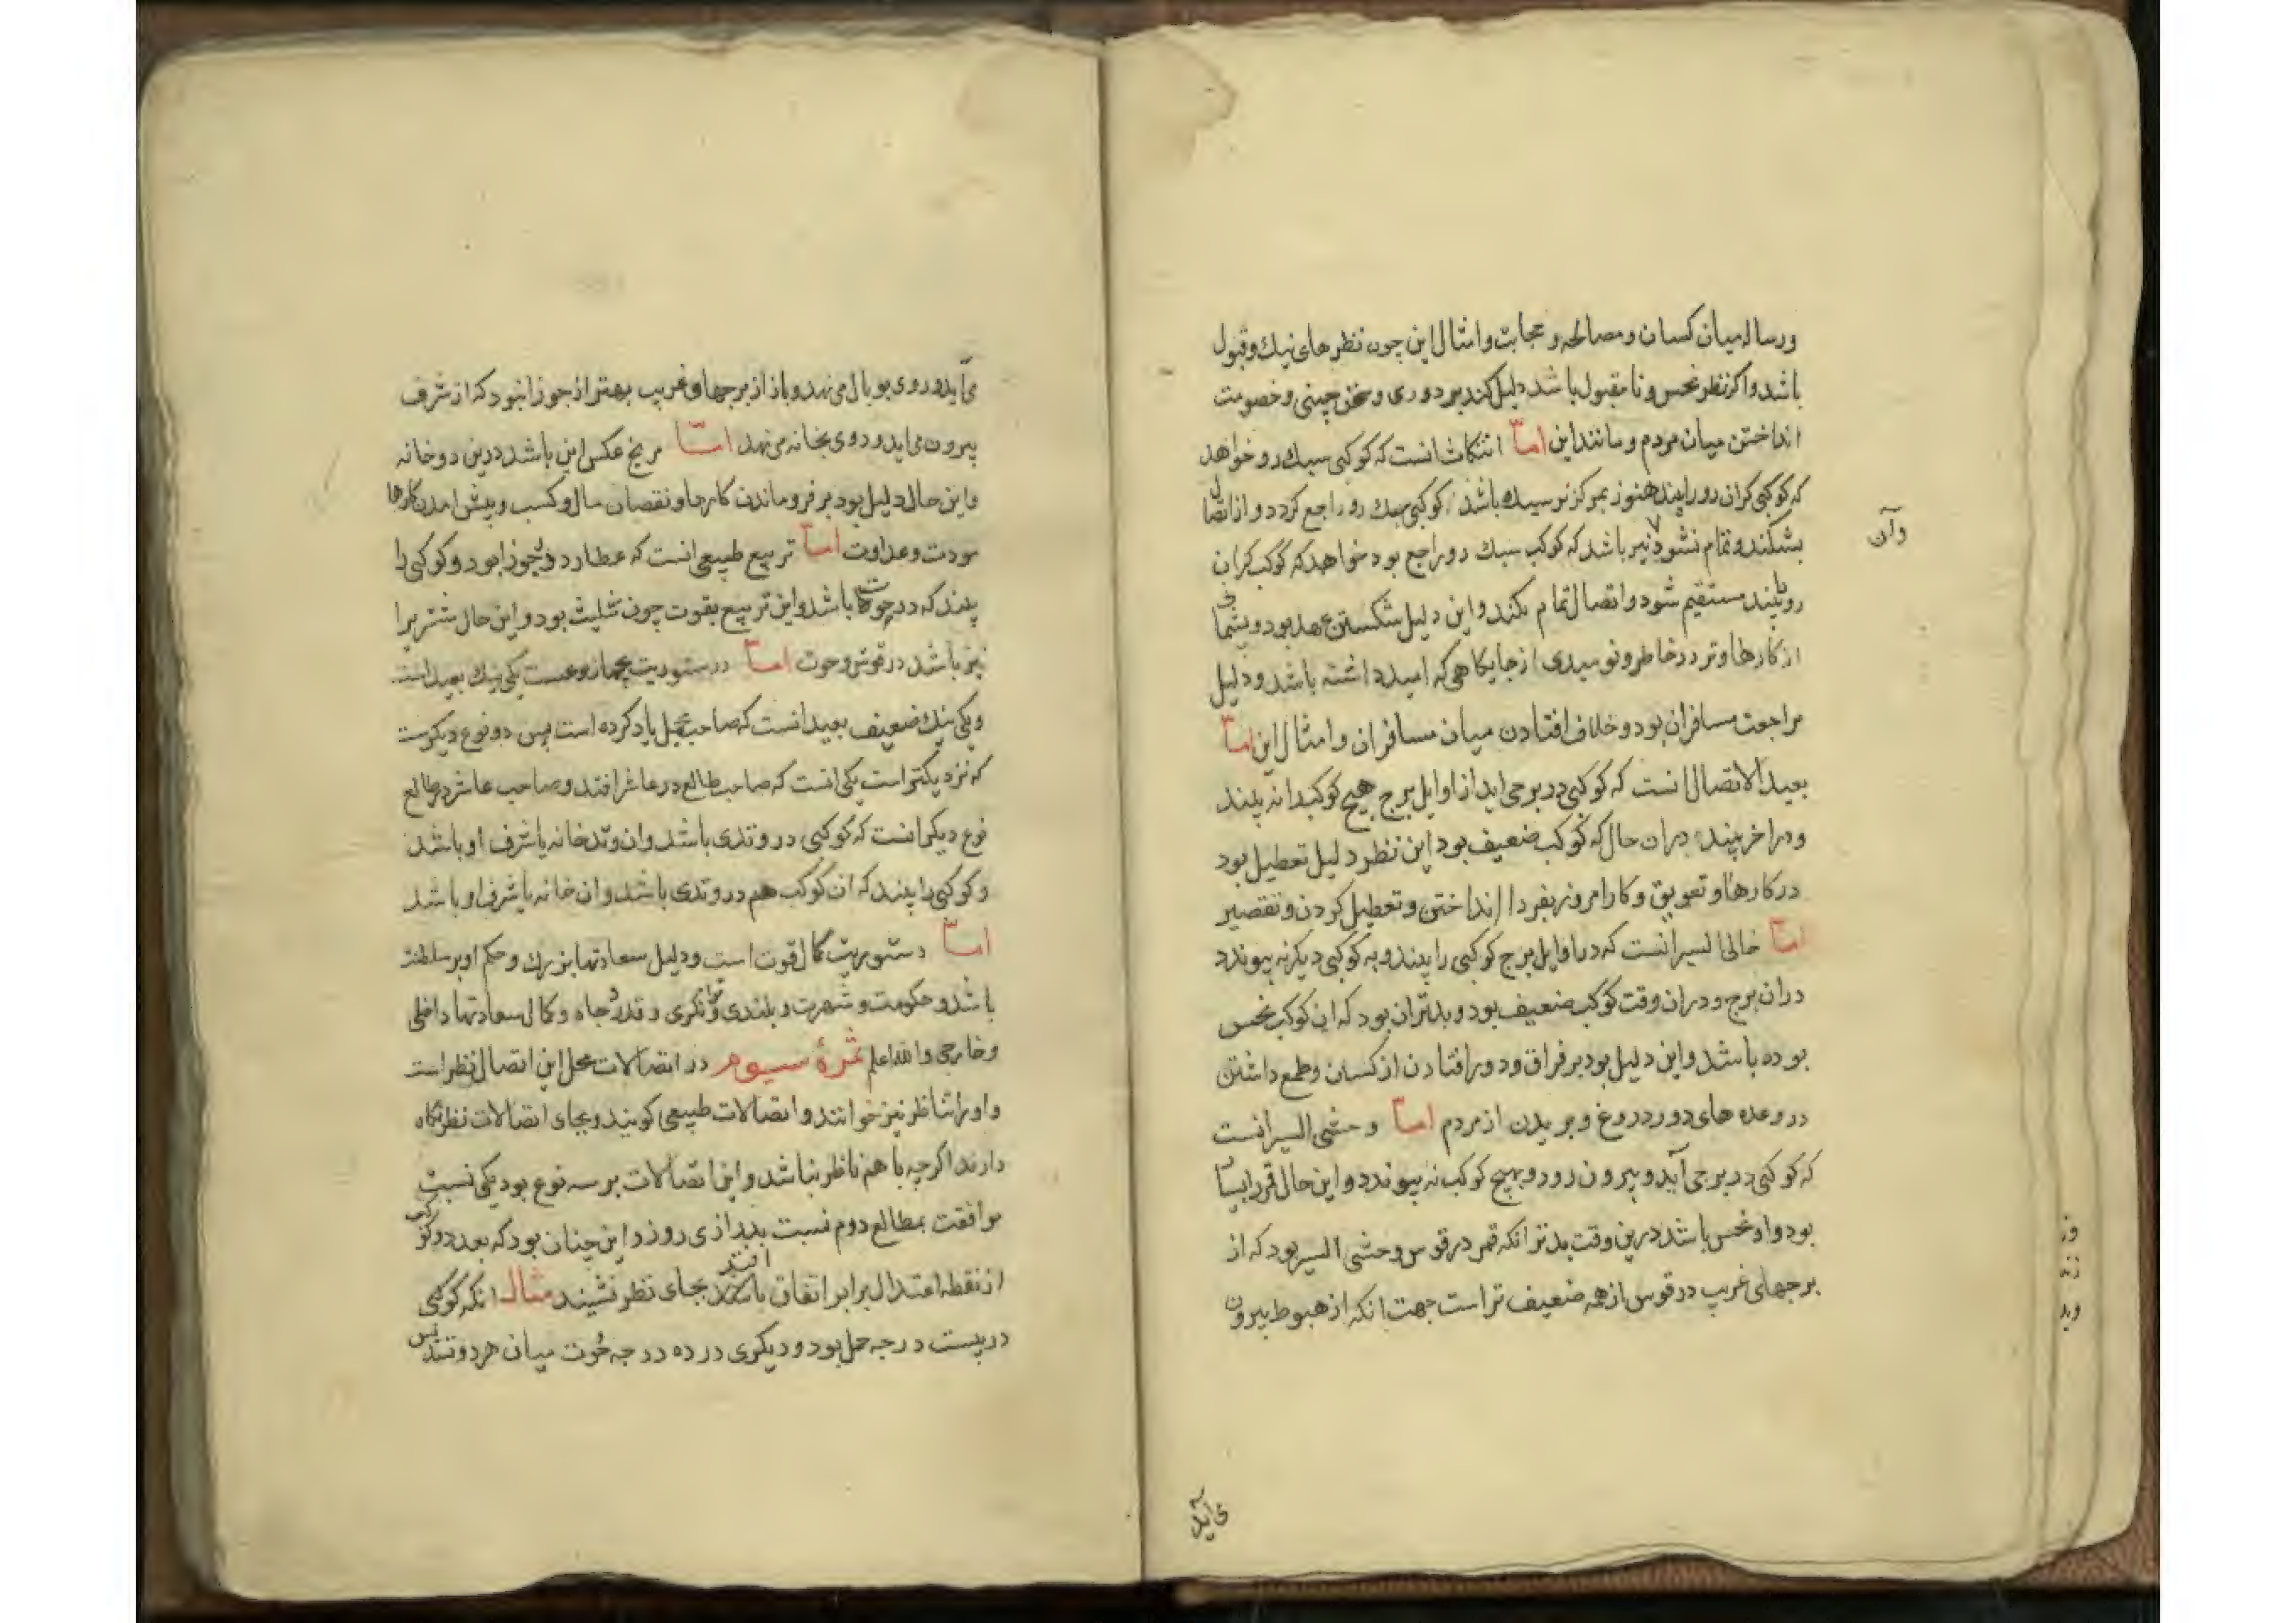 ورساله میان کسان و مصالحه و مجابت و امثال این چون نظرهای نیک و قبول
باشد و اکر نظر نحس و نامقبول باشد دلیل کند بر دوری و سخن چینی و خصومت
انداختن میان مردم و مانند این اما انتکاث انست که کوکبی سبک رو خواهد
که کوکبی کران رو را بیند هنوز بمرکز نرسیده باشد کوکبی سبک رو راجع کردد و از اتصال
بشکند و تمام نشود و نیز باشد که کوکب سبک رو راجع بود خواهد که کوکب کران
رو بیند مستقیم شود و اتصال تمام نکند و این دلیل شکستن عهد بود و پشیمانی
از کارها و تردد خاطر و نومیدی از جایکاهی که امید داشته باشد و دلیل
مراجعت مسافران بود و خلاف افتادن میان مسافران و امثال این اما
بعید الاتصال انست که کوکبی در برجی اید از اوایل برج هیچ کوکب را نه بیند
و در اخر بیند دران حال که کوکب ضعیف بود این نظر دلیل تعطیل بود
در کارها و تعویق و کار امروز بفردا انداختن و تعطیل کردن و تقصیر
اما خالی السیر انست که در اوایل برج کوکبی را بیند و به کوکبی دیکر نه پیوندد
دران برج و دران وقت کوکب ضعیف بود و بدتر ان بود که ان کوکب نحس
بوده باشد و این دلیل بود بر فراق و دور افتادن از کسان و طمع داشتن
در وعده های دور دروغ و بریدن از مردم اما وحشی السیر انست
که کوکبی در برجی آید و بیرون رود و بهیچ کوکب نه پیوندد و این حال قمر را بسیار
بود و او نحس باشد درین وقت بدتر انکه قمر در قوس وحشی السیر بود که از
برجهای غریب در قوس از همه ضعیف تر است جهت انکه از هبوط بیرون
وآن
می آید
می آید و روی بوبال می نهد و باز از برجهاء غریب بهتر از جوزا نبود که از شرف
بیرون می اید و روی بخانه می نهد اما مریخ عکس این باشد درین دو خانه
و این حال دلیل بود بر فرو ماندن کارها و نقصان مال و کسب و پیش امدن کارها
مودت و عداوت اما تربیع طبیعی انست که عطارد در جوزا بود و کوکبی را
بیند که در حوت باشد و این تربیع بقوت چون تثلیث بود و این حال مشتریرا
نیز باشد در قوس و حوت اما دستوریت نوعست یکی نیک بعید است
و یکی نیک ضعیف بعید انست که صاحب یاد کرده است پس دو نوع دیکرست
که نزدیکتر است یکی انست که صاحب طالع در عاشر افتد و صاحب عاشر در طالع
نوع دیکر انست که کوکبی در وتدی باشد و ان وتد خانه یا شرف او باشد
و کوکبی را بیند که ان کوکب هم در وتدی باشد و ان خانه یا شرف او باشد
اما دستوریت کمال قوت است و دلیل سعادتها بزرك و حکم او بر سلطنت
باشد و حکومت و شهرت و بلندی و توانکری و قدر و جاه و کمال سعادتها داخلی
و خارجی والله اعلم ثمرهٔ سیوم در اتصالات محل این اتصال نظر است
و او را تناظر نیز خوانند و اتصالات طبیعی کویند و بجای اتصالات نظر نکاه
دارند اکرچه با هم ناظر نباشد و این اتصالات بر سه نوع بود یکی نسبت
موافقت بمطالع دوم نسبت بدرازی روز و این چنان بود که بعد دو کوکب
از نقطه اعتدال برابر اتفاق افتد بجای نظر نشیند مثال انکه کوکبی
در بیست درجه حمل بود و دیکری در ده درجه حوت میان هر دو